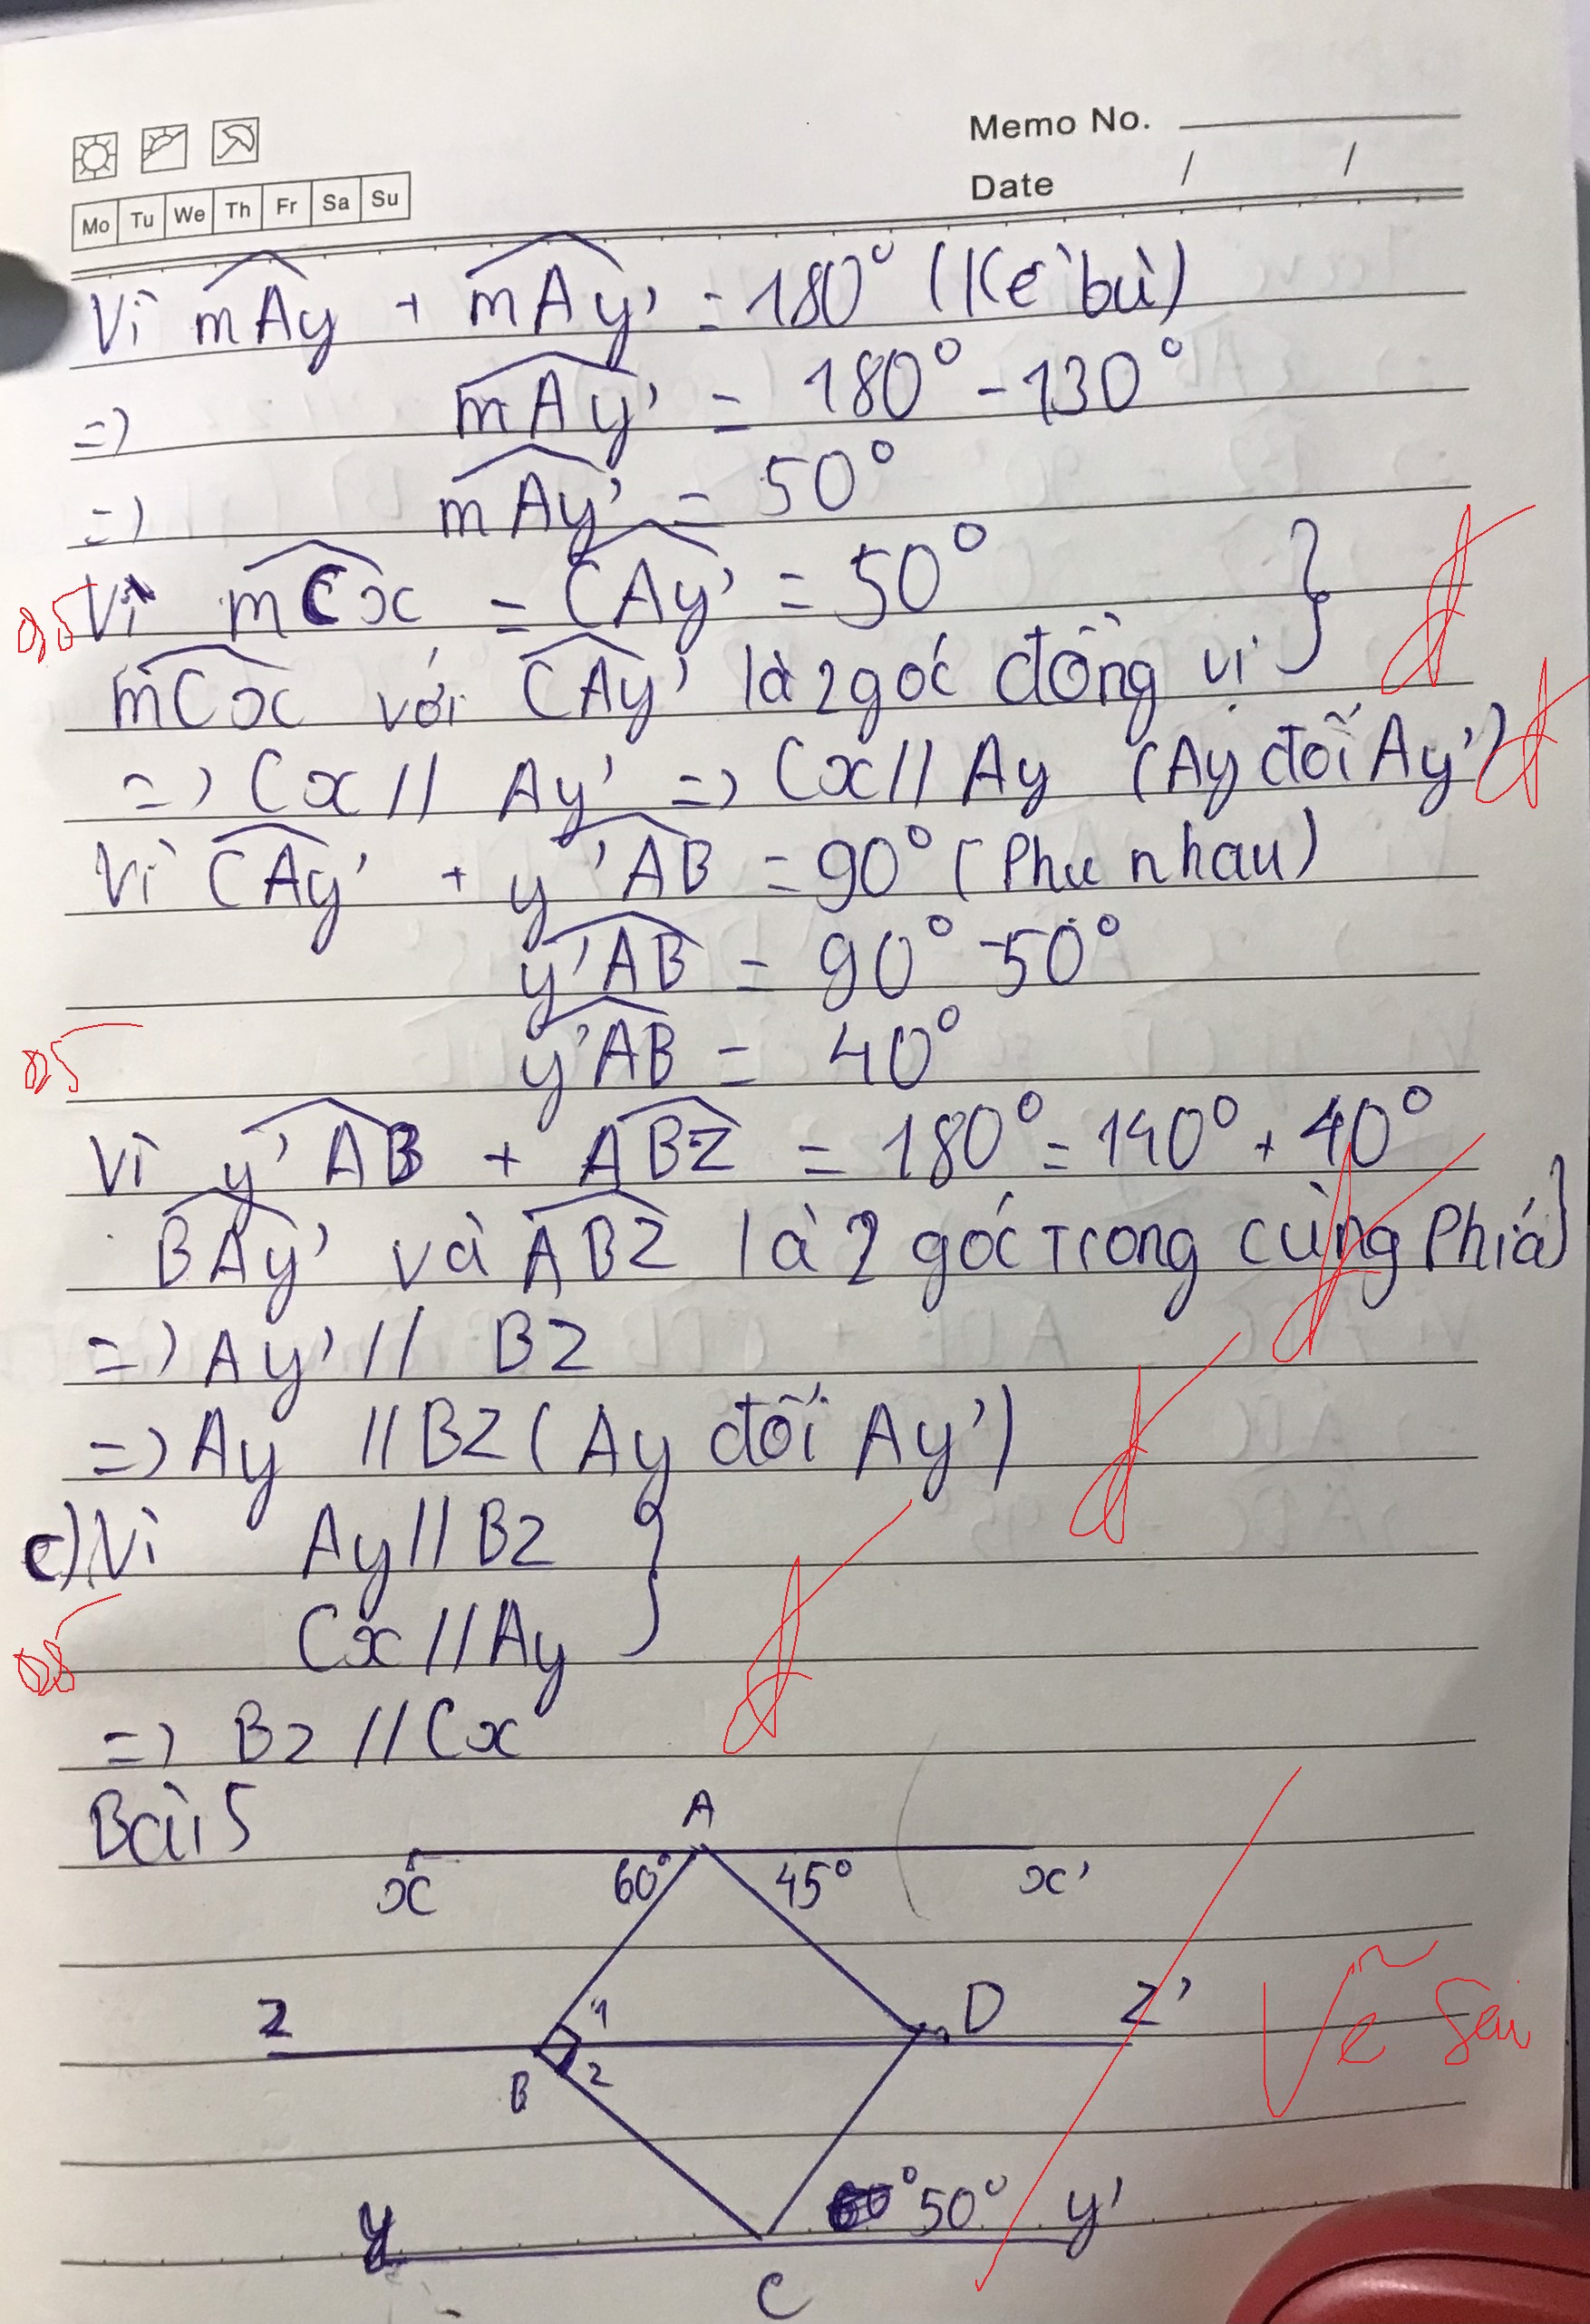 Memo No.
Date / /
Mo Tu We Th Fr Sa Su
Vì mAy + mAy' = 180° (Kề bù)
=> mAy' = 180° - 130°
=> mAy' = 50°
0,5 Vì mCx = CAy' = 50° }
mCx với CAy' là 2 góc đồng vị
=> Cx // Ay' => Cx // Ay (Ay đối Ay')
Vì CAy' + y'AB = 90° (Phụ nhau)
y'AB = 90° - 50°
0,5 y'AB = 40°
Vì y'AB + ABz = 180° = 140° + 40°
BAy' và ABz là 2 góc trong cùng Phía }
=> Ay' // Bz
=> Ay // Bz (Ay đối Ay')
c) Vì Ay // Bz }
0,5 Cx // Ay
=> Bz // Cx
Bài 5
A
x 60° 45° x'
z 1 D z'
B 2
Vẽ Sai
y 50° y'
C